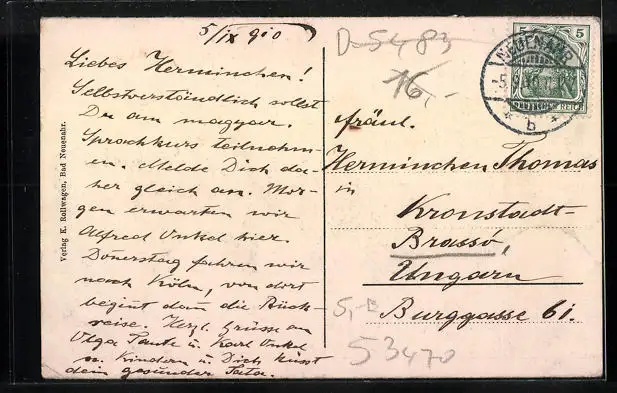 5/IX 910
Liebes Herminchen!
Selbstverständlich sollst
Du am magyar.
Sprachkurs teilnehm-
en. Melde Dich da-
her gleich an. Mor-
gen erwarten wir
Alfred Onkel hier.
Donerstag fahren wir
nach Köln, von dort
begint dan die Rück-
reise. Herzl. Grüsse an
Olga Tante u. Karl Onkel
u. Kindern u. Dich küsst
dein gesunder Tata.
Verlag K. Rollwagen, Bad Neuenahr.
D-5483
16,-
5
5
NEUENAHR
REICH
* b *
Fräul.
Herminchen Thomas
in
Kronstadt-
Brassó,
Ungarn
Burggasse 61.
53470